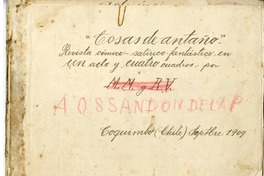 "Cosas de antaño."
Revista cómico-satírico fantástico, en
un acto y cuatro cuadros por
M. M. y R. V.
A OSSANDON DE LA P
Coquimbo (Chile) Septbre 1909